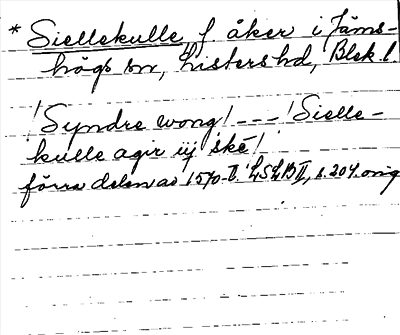 * Siellekulle f. åker i Jäms-
högs sn, Listers hd, Blek. l.
! Syndre wong! --- ! Sielle-
kulle agir iij ske!
förra delen av 1570-t. LSLB II, s. 204 orig